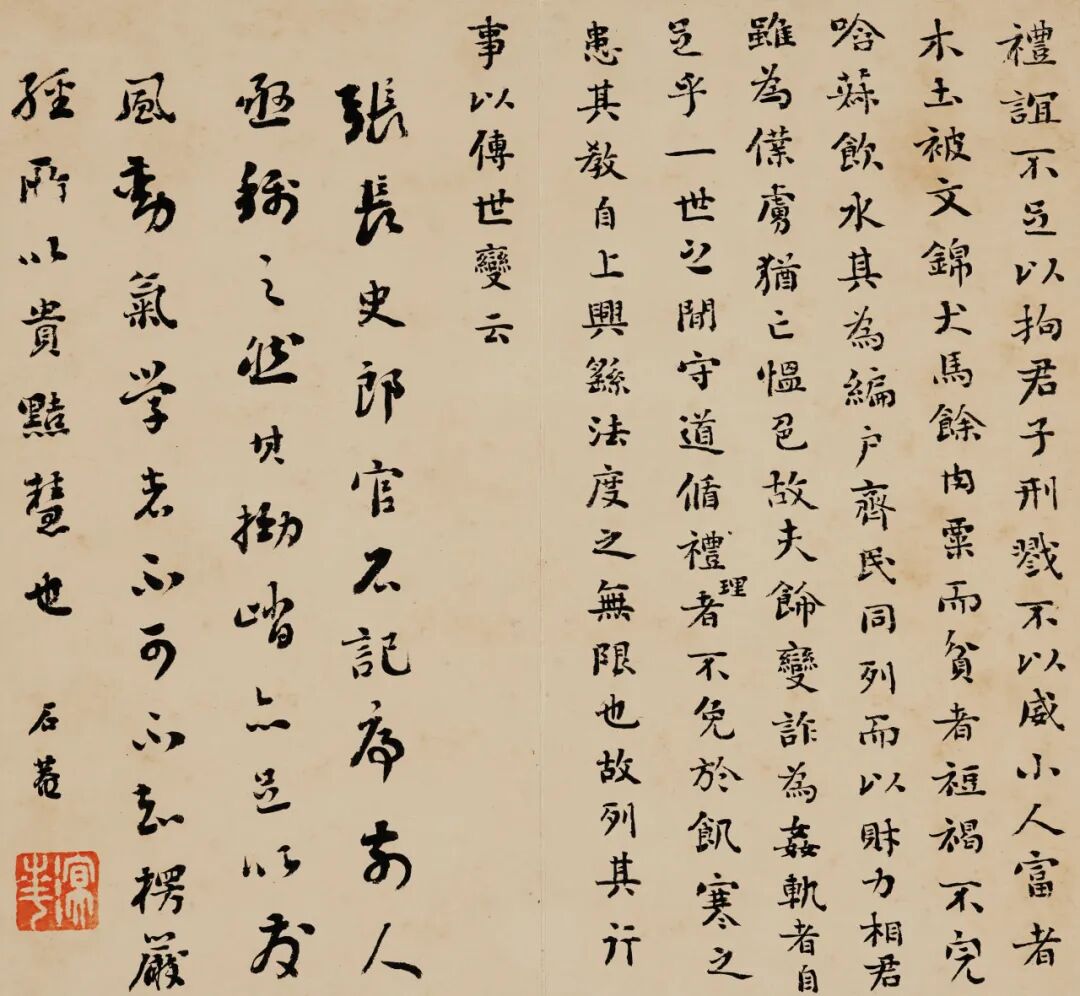 禮誼不足以拘君子刑戮不以威小人富者
木土被文錦犬馬餘肉粟而貧者裋褐不完
唅菽飲水其為編戶齊民同列而以財力相君
雖為僕虜猶亡慍色故夫飾變詐為姦軌者自
足乎一世之間守道循禮理者不免於飢寒之
患其教自上興繇法度之無限也故列其行
事以傳世變云
張長史郎官石記序前人
亟稱之然其拗峭亦足以發
風動氣学者不可不知楞嚴
經所以貴黠慧也 石菴